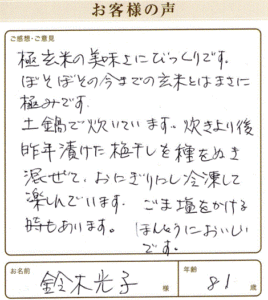 お客様の声
ご感想・ご意見
極玄米の美味さにびっくりです。
ぼそぼその今までの玄米とはまさに
極みです。
土鍋で炊いています。炊き上り後
昨年漬けた梅干しを種をぬき
混ぜて、おにぎりにし冷凍して
楽しんでいます。ごま塩をかける
時もあります。ほんとうにおいしい
です。
お名前 鈴木光子 様 年齢 81 歳